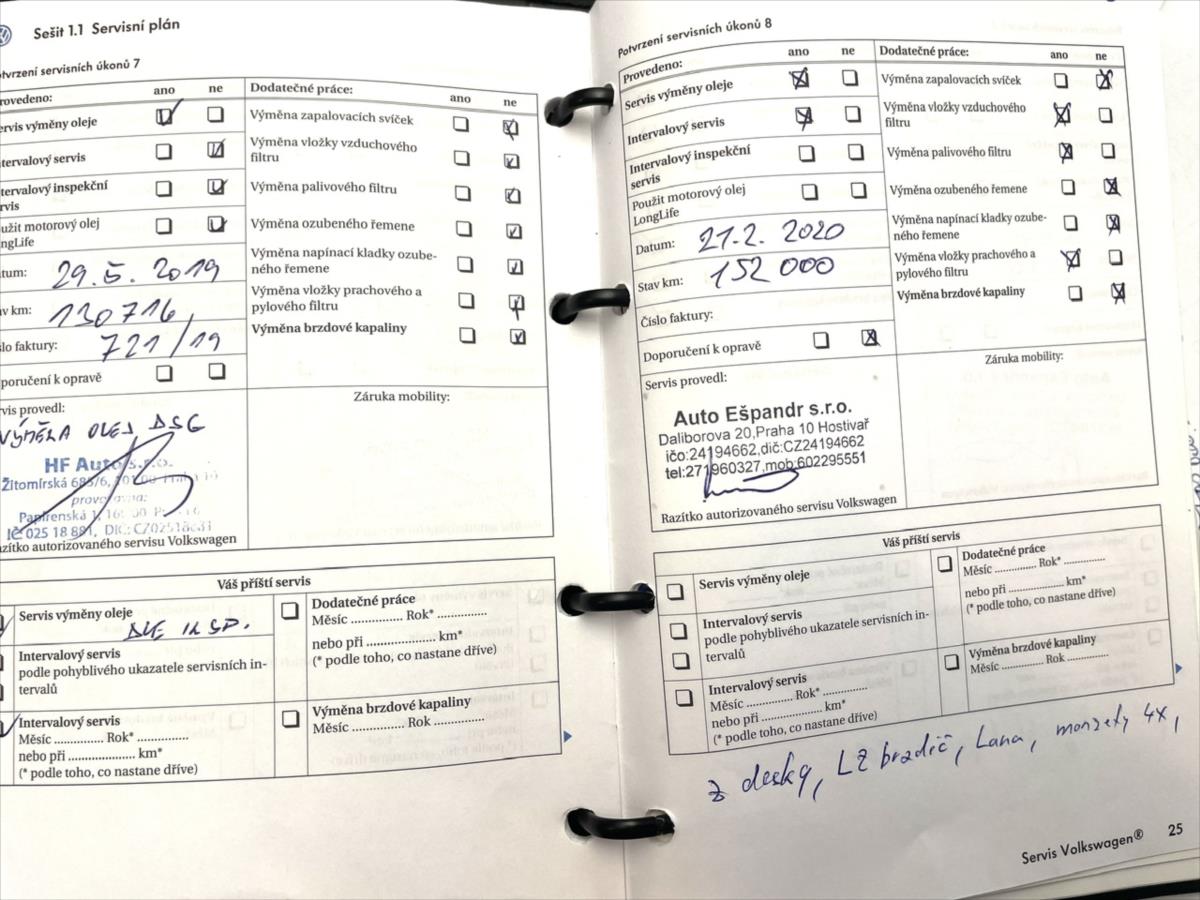 Sešit 1.1 Servisní plán
otvrzení servisních úkonů 7
rovedeno: ano ne
ervis výměny oleje
ntervalový servis
ntervalový inspekční
rvis
užit motorový olej
ngLife
tum: 29.5.2019
av km: 130716
slo faktury: 721/19
poručení k opravě
Dodatečné práce: ano ne
Výměna zapalovacích svíček
Výměna vložky vzduchového
filtru
Výměna palivového filtru
Výměna ozubeného řemene
Výměna napínací kladky ozube-
ného řemene
Výměna vložky prachového a
pylového filtru
Výměna brzdové kapaliny
rvis provedl:
VÝMĚNA OLEJ DSG
HF Auto s.r.o.
Žitomírská 685/6,
provozovna:
Papírenská 1,
IČ 025 18 881, DIČ: CZ02518881
azítko autorizovaného servisu Volkswagen
Záruka mobility:
Váš příští servis
Servis výměny oleje
DLE INSP.
Intervalový servis
podle pohyblivého ukazatele servisních in-
tervalů
Intervalový servis
Měsíc .............. Rok* ..............
nebo při .................... km*
(* podle toho, co nastane dříve)
Dodatečné práce
Měsíc .............. Rok* ..............
nebo při .................... km*
(* podle toho, co nastane dříve)
Výměna brzdové kapaliny
Měsíc .............. Rok ..............
Potvrzení servisních úkonů 8
Provedeno: ano ne
Servis výměny oleje
Intervalový servis
Intervalový inspekční
servis
Použit motorový olej
LongLife
Datum: 21.2. 2020
Stav km: 152 000
Číslo faktury:
Doporučení k opravě
Dodatečné práce: ano ne
Výměna zapalovacích svíček
Výměna vložky vzduchového
filtru
Výměna palivového filtru
Výměna ozubeného řemene
Výměna napínací kladky ozube-
ného řemene
Výměna vložky prachového a
pylového filtru
Výměna brzdové kapaliny
Servis provedl:
Auto Ešpandr s.r.o.
Daliborova 20,Praha 10 Hostivař
ičo:24194662,dič:CZ24194662
tel:271960327,mob:602295551
Razítko autorizovaného servisu Volkswagen
Záruka mobility:
Váš příští servis
Servis výměny oleje
Intervalový servis
podle pohyblivého ukazatele servisních in-
tervalů
Intervalový servis
Měsíc .............. Rok* ..............
nebo při .................... km*
(* podle toho, co nastane dříve)
Dodatečné práce
Měsíc .............. Rok* ..............
nebo při .................... km*
(* podle toho, co nastane dříve)
Výměna brzdové kapaliny
Měsíc .............. Rok ..............
z desky, LZ bradič, Lana, manzety 4x,
Servis Volkswagen® 25